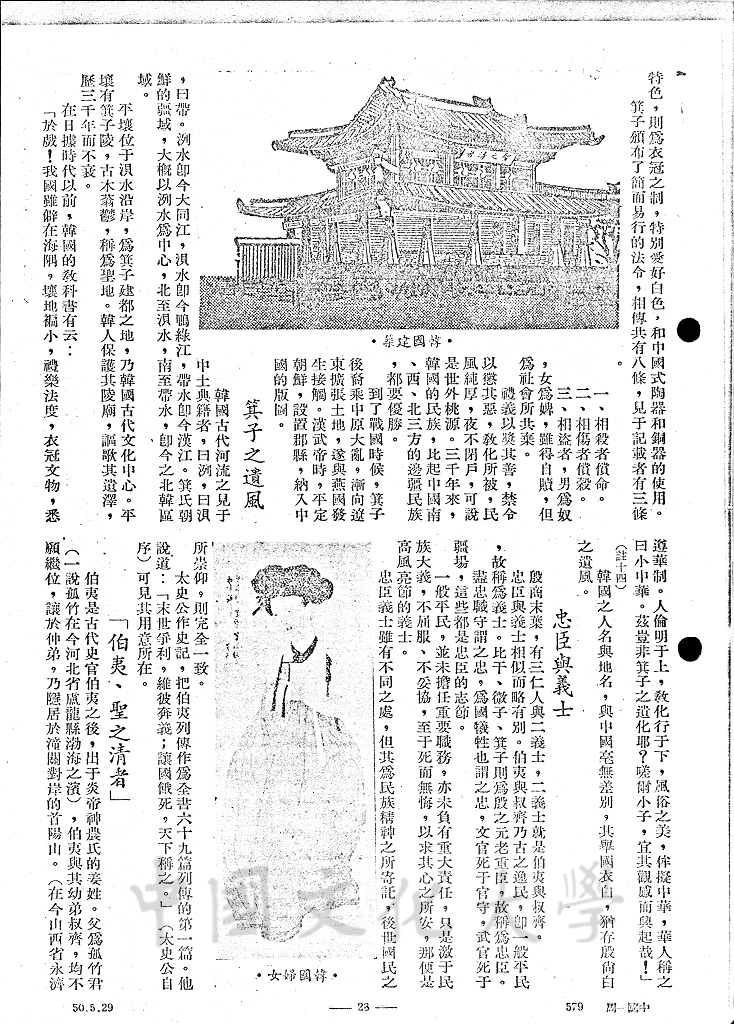 特色，則爲衣冠之制，特別愛好白色，和中國式陶器和銅器的使用。
箕子頒布了簡而易行的法令，相傳共有八條，見于記載者有三條
一、相殺者償命。
二、相傷者償穀。
三、相盜者，男爲奴
，女爲婢，雖得自贖，但
爲社會所共棄。
禮義以獎其善，禁令
以懲其惡，敎化所被，民
風純厚，夜不閉戶，可說
是世外桃源。三千年來，
韓國的民族，比起中國南
、西、北三方的邊疆民族
，都要優勝。
到了戰國時候，箕子
後裔乘中原大亂，漸向遼
東擴張土地，遂與燕國發
生接觸。漢武帝時，平定
朝鮮，設置郡縣，納入中
國的版圖。
箕子之遺風
韓國古代河流之見于
中土典籍者，曰洌，曰浿
，曰帶。洌水卽今大同江，浿水卽今鴨綠江，帶水卽今漢江。箕氏朝
鮮的疆域，大概以洌水爲中心，北至浿水，南至帶水，卽今之北韓區
域。
平壤位于浿水沿岸，爲箕子建都之地，乃韓國古代文化中心。平
壤有箕子陵，古木蓊鬱，稱爲聖地。韓人保護其陵廟，謳歌其遺澤，
歷三千年而不衰。
在日據時代以前，韓國的敎科書有云：
「於戲！我國雖僻在海隅，壤地褊小，禮樂法度，衣冠文物，悉
・韓國建築・
遵華制。人倫明于上，敎化行于下，風俗之美，侔擬中華，華人稱之
曰小中華。茲豈非箕子之遺化耶？嗟爾小子，宜其觀感而興起哉！」
（註十四）
韓國之人名與地名，與中國毫無差別，其舉國衣白，猶存殷尙白
之遺風。
忠臣與義士
殷商末葉，有三仁人與二義士，二義士就是伯夷與叔齊。
忠臣與義士相似而略有別。伯夷與叔齊乃古之逸民，卽一般平民
，故稱爲義士。比干、微子、箕子則爲殷之元老重臣，故稱爲忠臣。
盡忠職守謂之忠，爲國犧牲也謂之忠，文官死于官守，武官死于
疆場，這些都是忠臣的志節。
一般平民，並未擔任重要職務，亦未負有重大責任，只是激于民
族大義，不屈服、不妥協，至于死而無悔，以求其心之所安，那便是
高風亮節的義士。
忠臣義士雖有不同之處，但其爲民族精神之所寄託，後世國民之
所崇仰，則完全一致。
太史公作史記，把伯夷列傳作爲全書六十九篇列傳的第一篇。他
說道：「末世爭利，維彼奔義；讓國餓死，天下稱之。」（太史公自
序）可見其用意所在。
「伯夷、聖之清者」
伯夷是古代史官伯夷之後，出于炎帝神農氏的姜姓。父爲孤竹君
（一說孤竹在今河北省盧龍縣渤海之濱），伯夷與其幼弟叔齊，均不
願繼位，讓於仲弟，乃隱居於潼關對岸的首陽山。（在今山西省永濟
・韓國婦女・
中國文化大學
50.5.29
— 23 —
579
中國一周